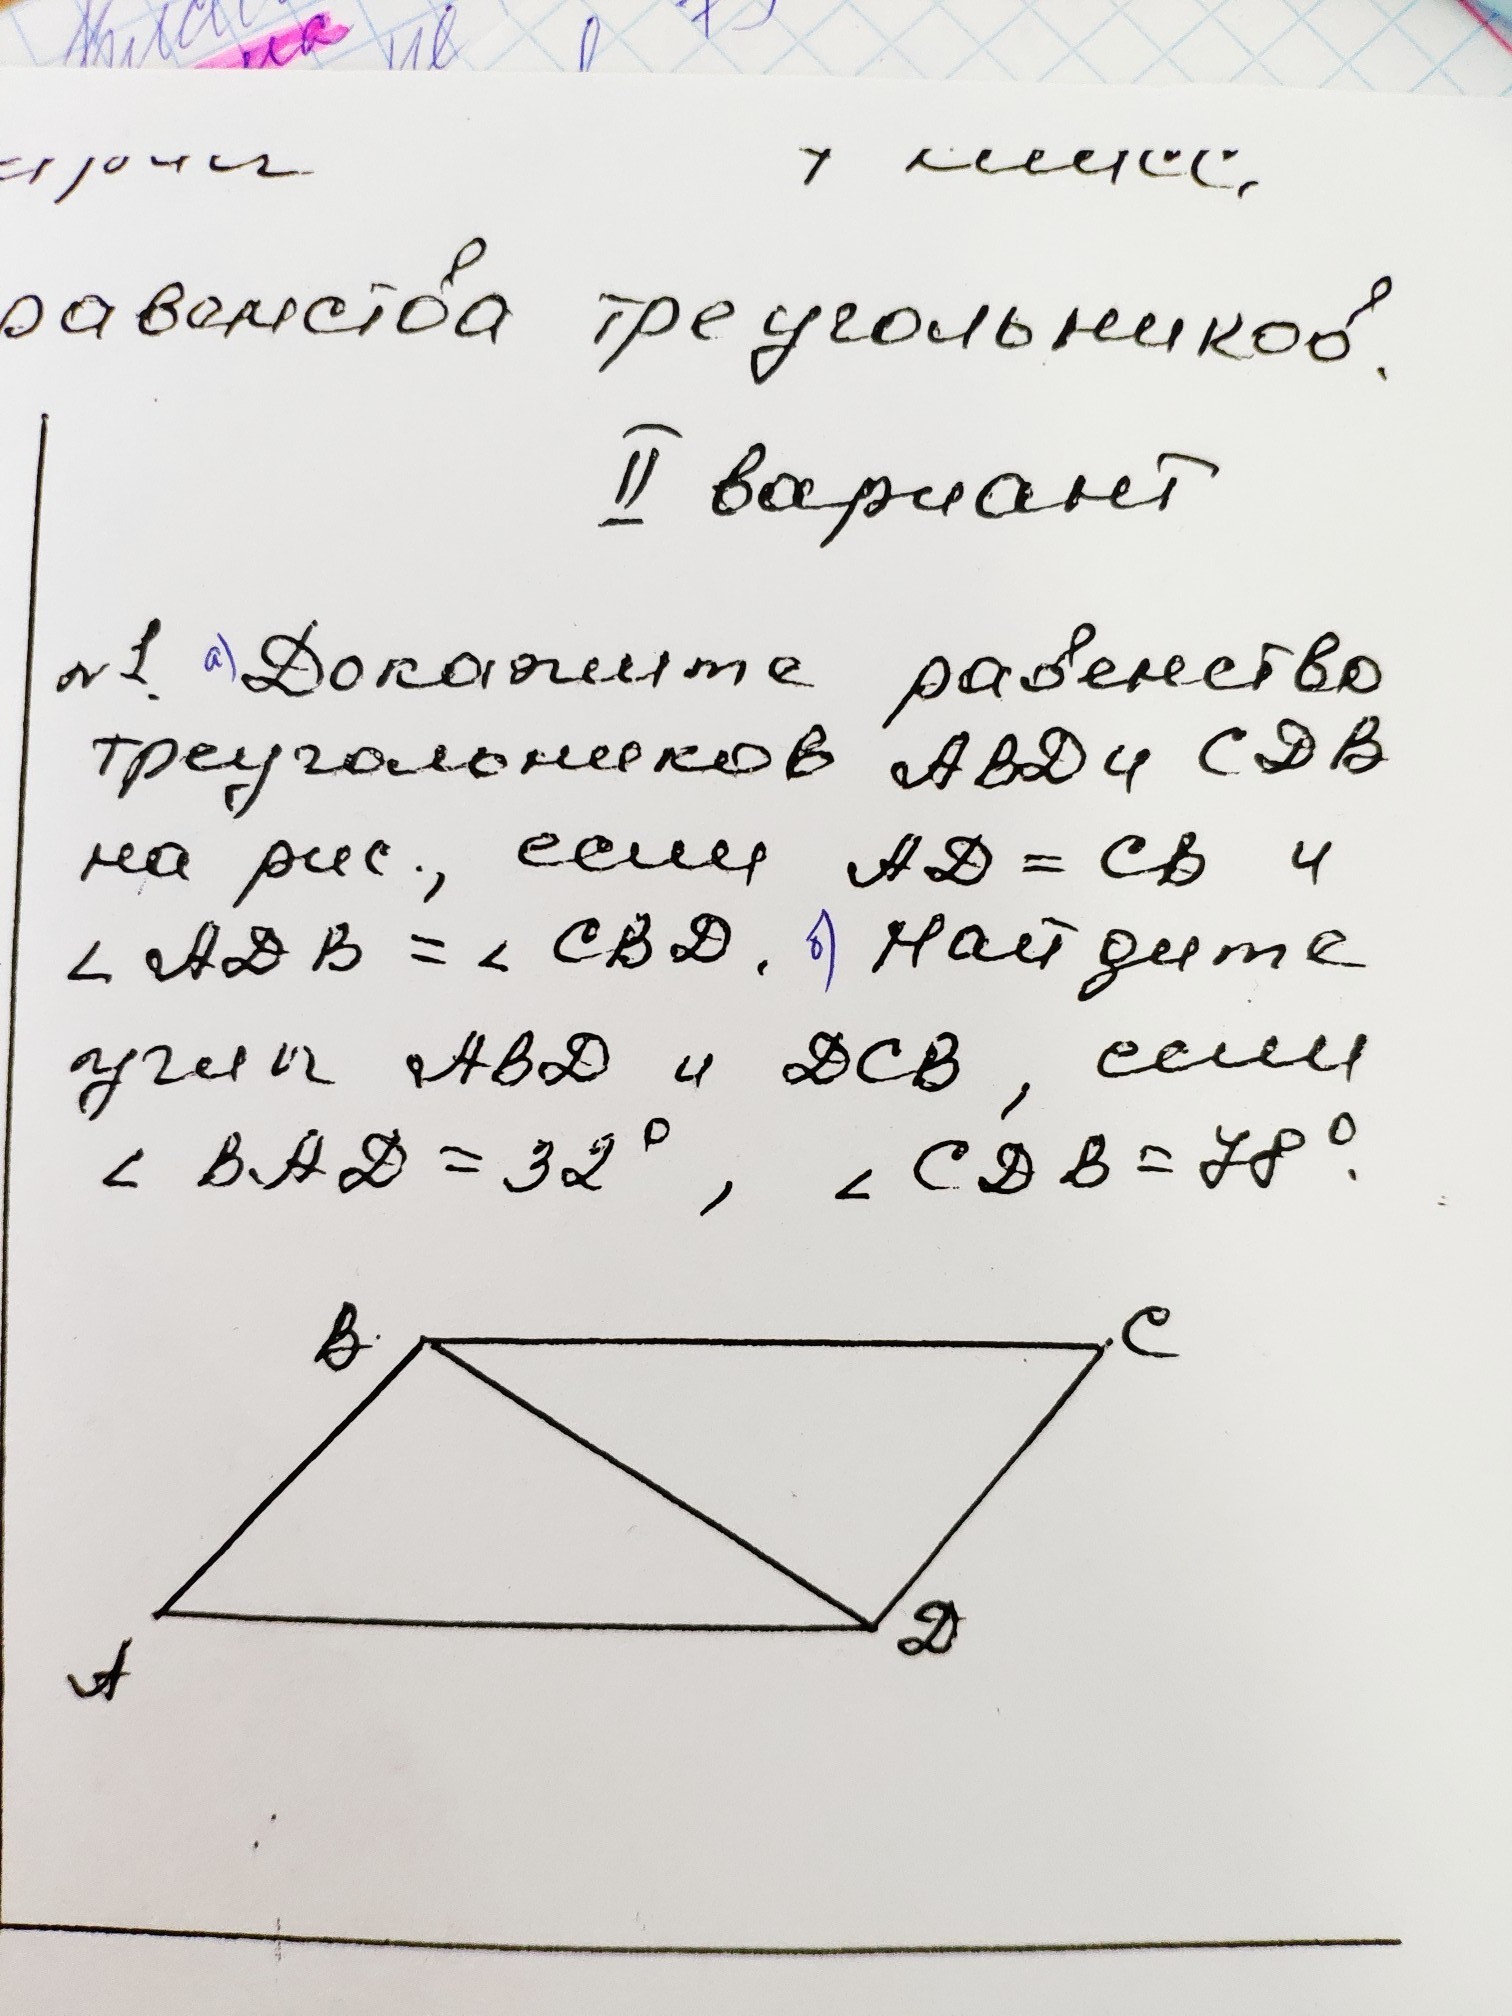 класс.
равенства треугольников.
II вариант
№1. а) Докажите равенство
треугольников ABD и CDB
на рис., если AD = CB и
∠ ADB = ∠ CBD. б) Найдите
углы ABD и DCB, если
∠ BAD = 32°, ∠ CDB = 78°.
B C
A D